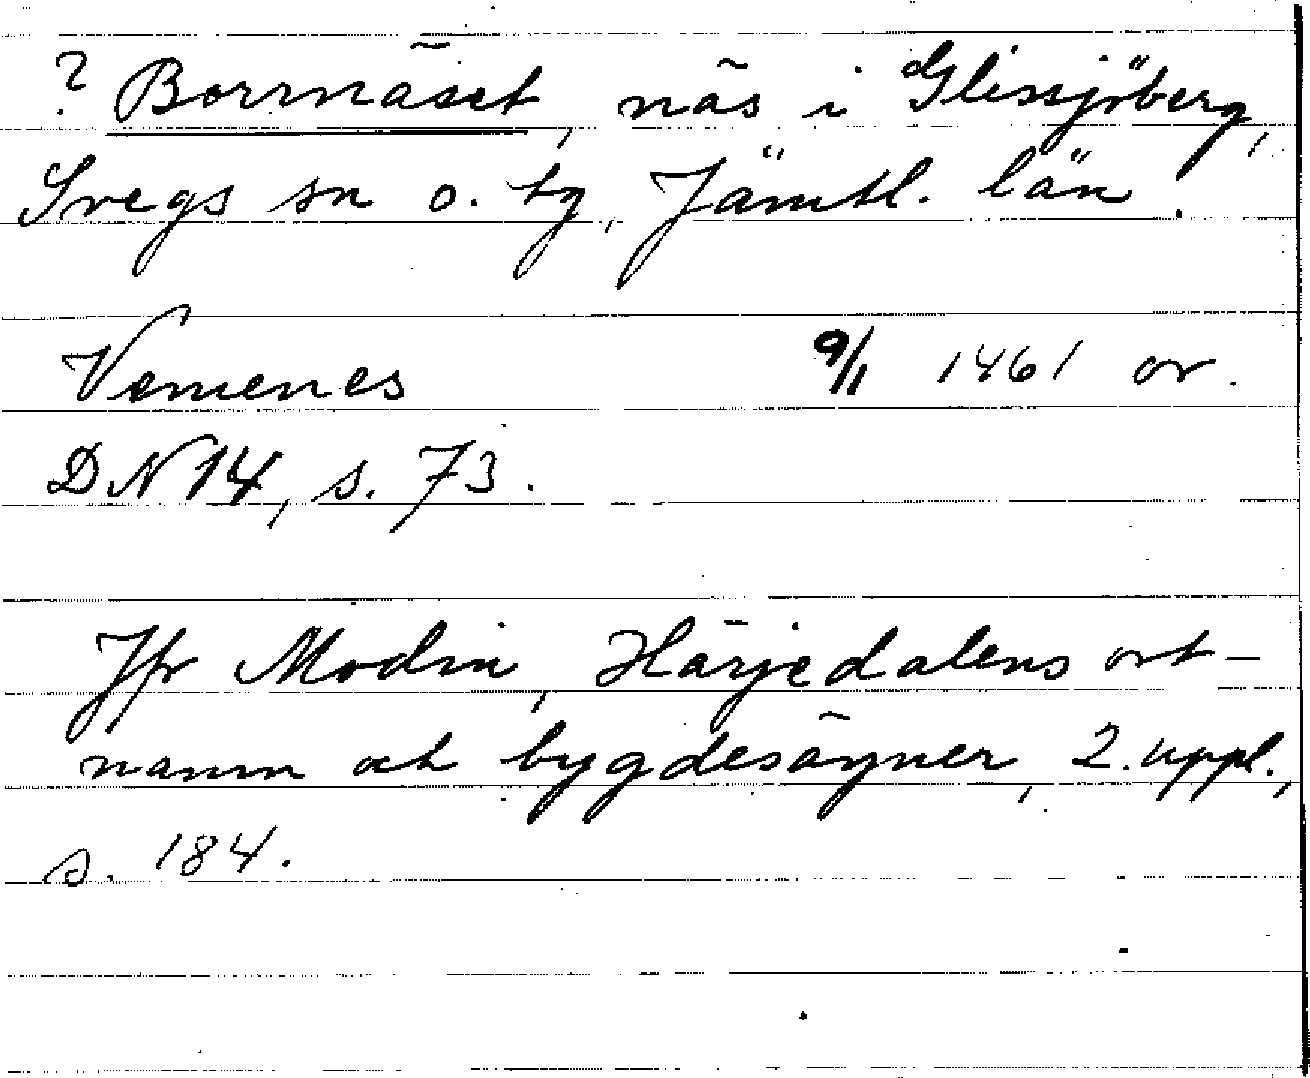 ? Borrnäset, näs i Glissjöberg,
Svegs sn o. tg, Jämtl. län.
Vemenes 9/1 1461 or.
DN 14, s. 73.
Jfr Modin, Härjedalens ort-
namn och bygdesägner, 2. uppl.,
s. 184.